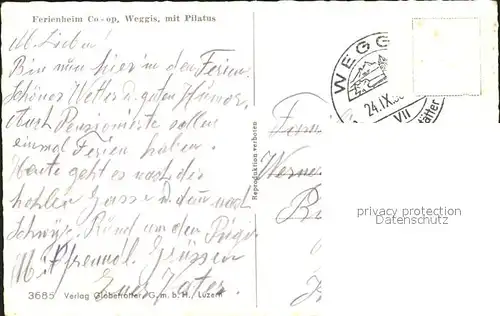 Ferienheim Co-op, Weggis, mit Pilatus
M. Lieben!
Bin nun hier in den Ferien.
Schönes Wetter u. guten Humor.
Auch Pensionierte sollen
einmal Ferien haben.
Heute geht es nach der
hohlen Gasse u. dann nach
Schwyz. Rund um den Rigi.
Mit freundl. Grüssen
Euer Vater.
3685 Verlag Globetrotter G. m. b. H., Luzern
Reproduktion verboten
WEGG
24.IX.
VII
Werne
privacy protection
Datenschutz